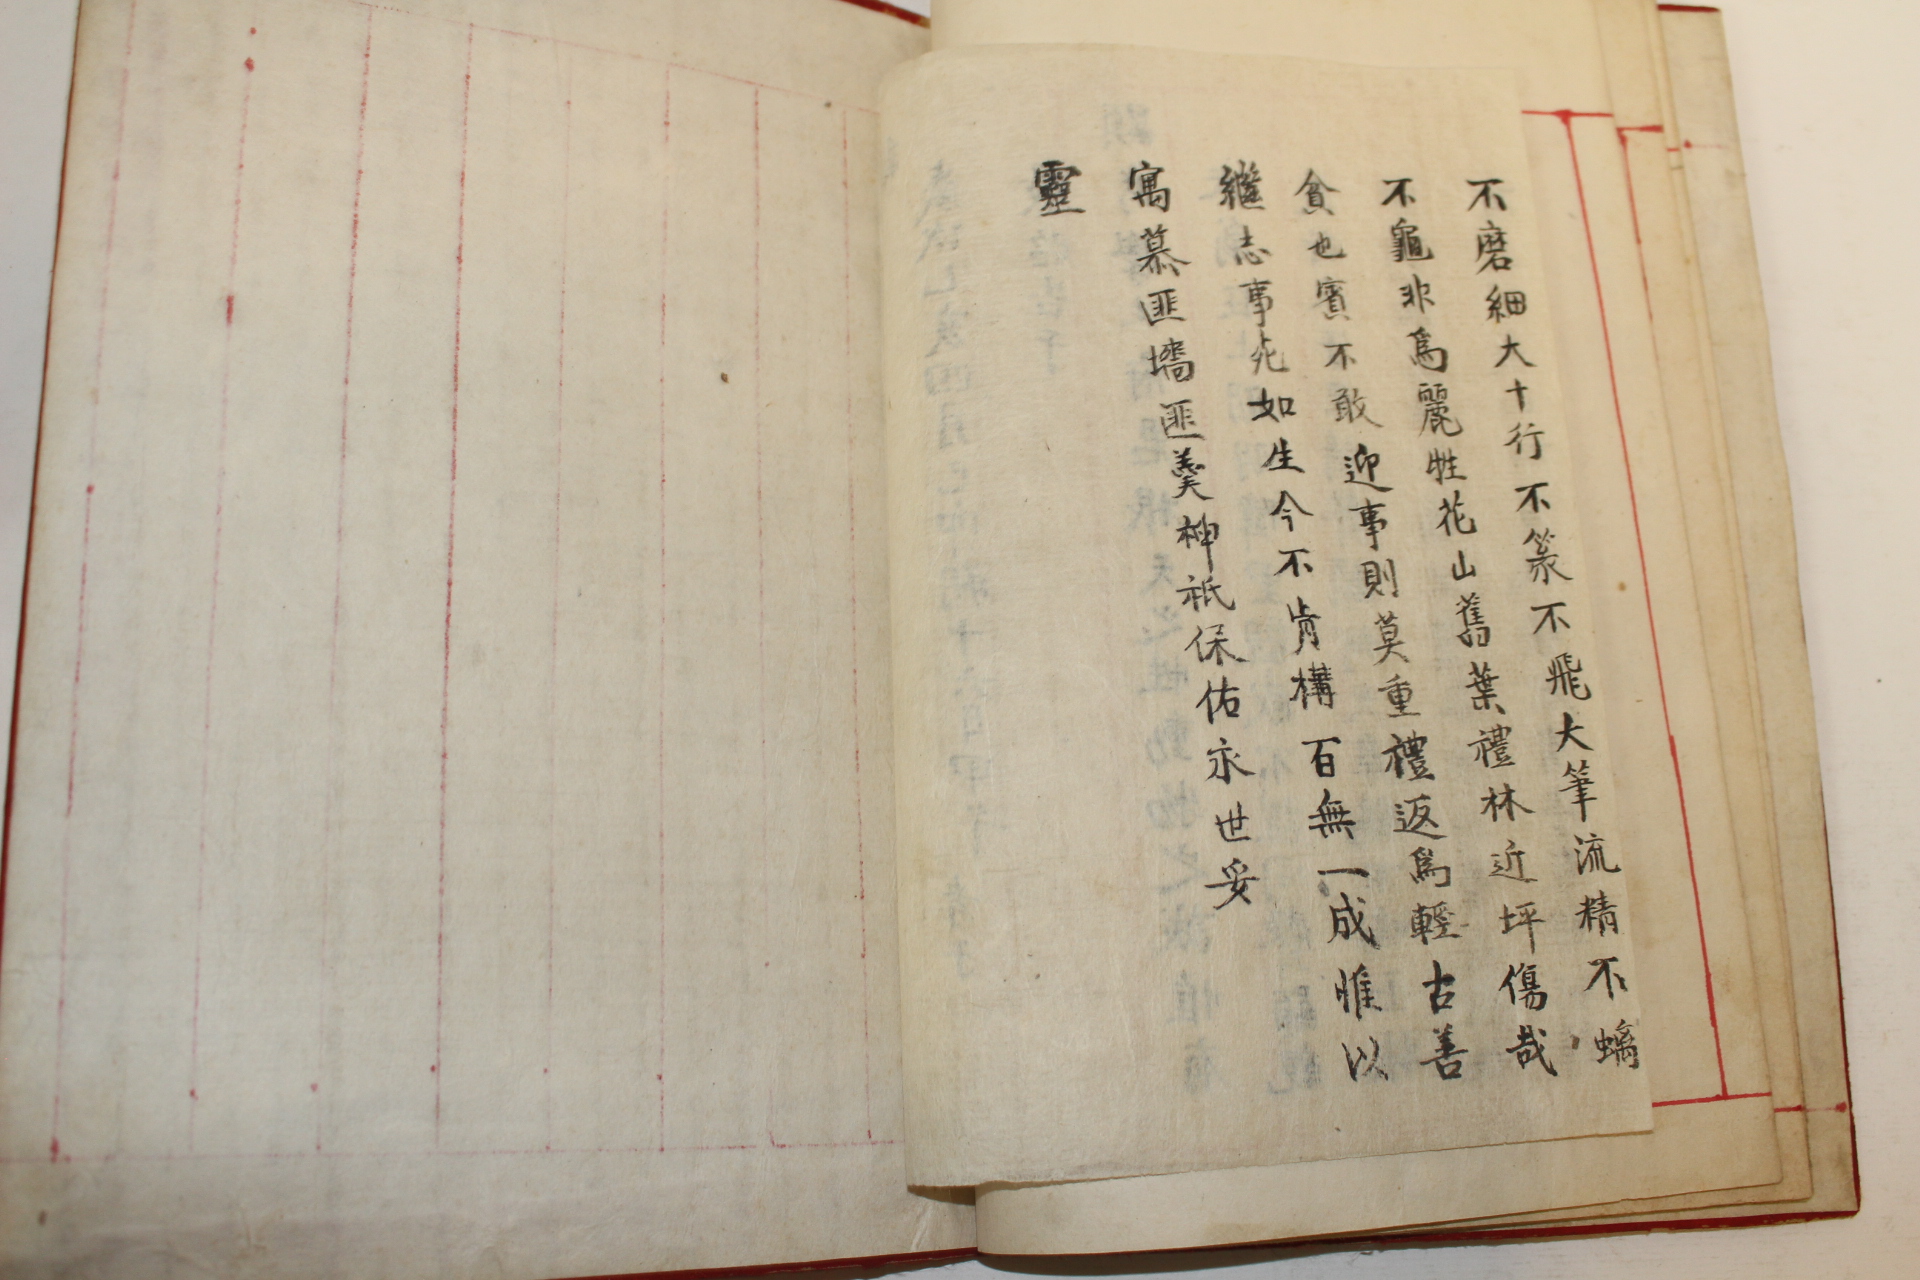 不磨細大十行不篆不飛大筆流精不螭
不龜非爲麗牲花山舊葉禮林近坪傷哉
貧也賓不敢迎事則莫重禮返爲輕古善
繼志事死如生今不肯構百無一成惟以
寓慕匪墻匪羹神祇保佑永世妥
靈